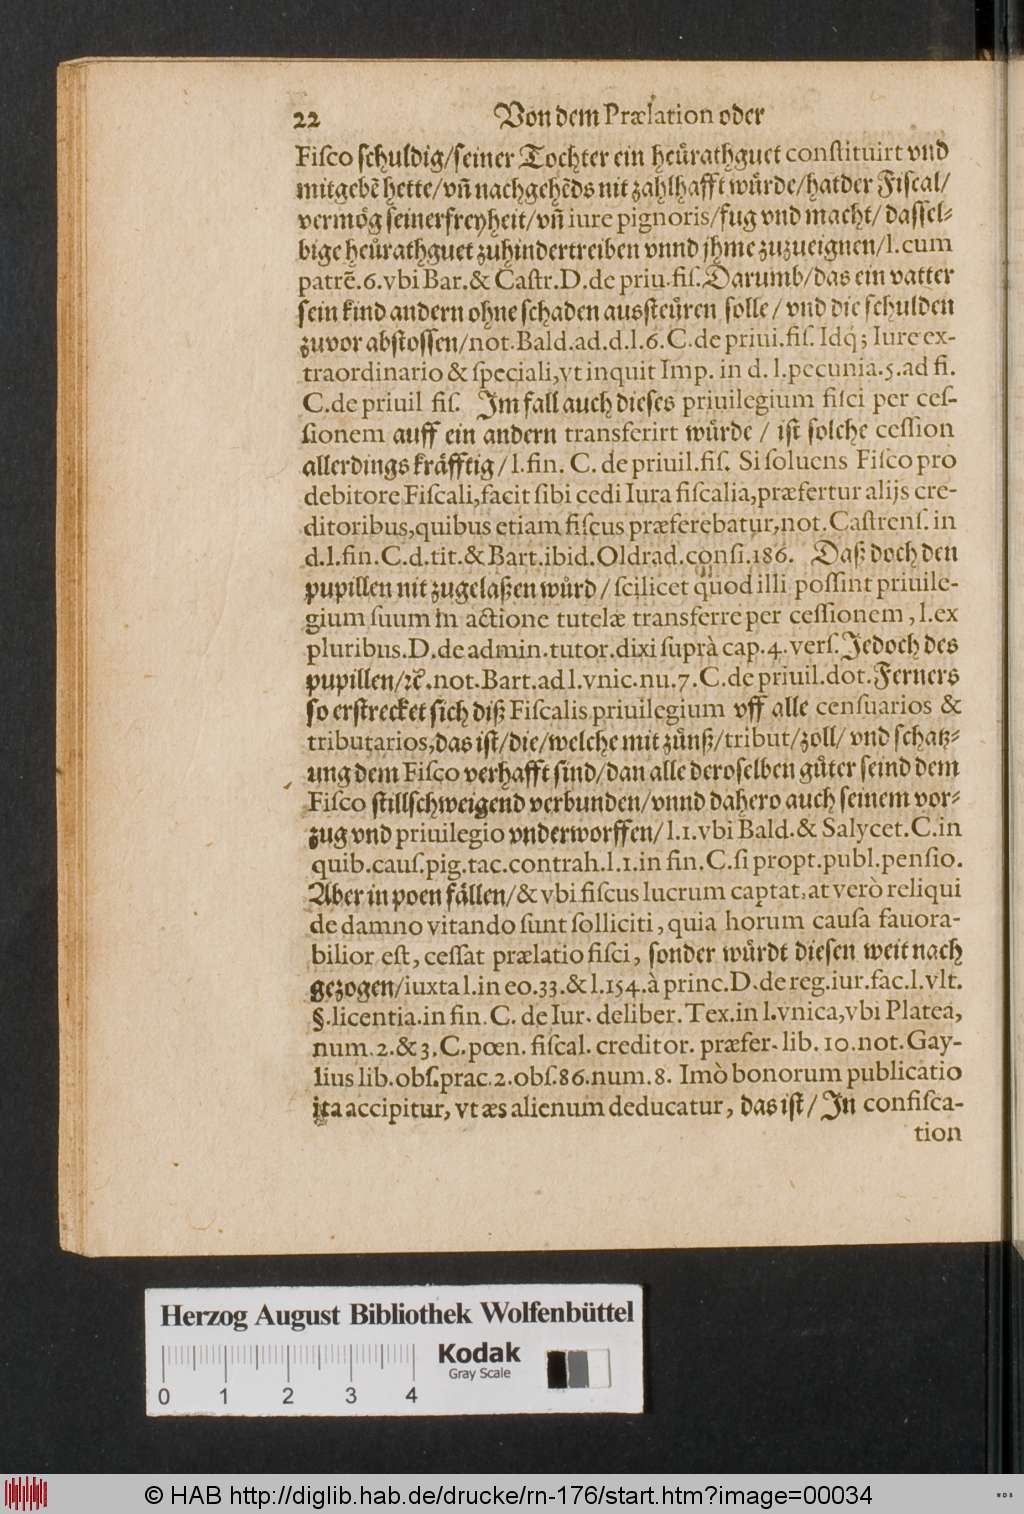 22 Von dem Prælation oder
Fiſco ſchuldig/ſeiner Tochter ein heürathguet conſtituirt vnd
mitgebẽ hette/vñ nachgehẽds nit zahlhafft würde/hat der Fiſcal/
vermög ſeiner freyheit/vñ iure pignoris/fug vnd macht/daſſel⸗
bige heürathguet zuhindertreiben vnnd jhme zuzueignen/l. cum
patrẽ. 6. vbi Bar. & Caſtr. D. de priu. fiſ. Darumb/das ein vatter
ſein kind andern ohne ſchaden ausſteüren ſolle/vnd die ſchulden
zuvor abſtoſſen/not. Bald. ad. d. l. 6. C. de priui. fiſ. Idq́; Iure ex-
traordinario & ſpeciali, vt inquit Imp. in d. l. pecunia. 5. ad fi.
C. de priuil fiſ. Im fall auch dieſes priuilegium fiſci per ceſ-
ſionem auff ein andern transferirt würde/iſt ſolche ceſſion
allerdings kräfftig/l. fin. C. de priuil. fiſ. Si ſoluens Fiſco pro
debitore Fiſcali, facit ſibi cedi Iura fiſcalia, præfertur alijs cre-
ditoribus, quibus etiam fiſcus præferebatur, not. Caſtrenſ. in
d. l. fin. C. d. tit. & Bart. ibid. Oldrad. conſi. 186. Daß doch den
pupillen nit zugelaßen würd/ſcilicet quod illi poſſint priuile-
gium ſuum in actione tutelæ transferre per ceſſionem, l. ex
pluribus. D. de admin. tutor. dixi ſuprà cap. 4. verſ. Jedoch des
pupillen/ꝛc̃. not. Bart. ad l. vnic. nu. 7. C. de priuil. dot. Ferners
ſo erſtrecket ſich diß Fiſcalis priuilegium vff alle cenſuarios &
tributarios, das iſt/die/welche mit zünß/tribut/zoll/vnd ſchatz⸗
ung dem Fiſco verhafft ſind/dan alle deroſelben güter ſeind dem
Fiſco ſtillſchweigend verbunden/vnnd dahero auch ſeinem vor⸗
zug vnd priuilegio vnderworffen/l. 1. vbi Bald. & Salycet. C. in
quib. cauſ. pig. tac. contrah. l. 1. in fin. C. ſi propt. publ. penſio.
Aber in poen fällen/& vbi fiſcus lucrum captat, at verò reliqui
de damno vitando ſunt ſolliciti, quia horum cauſa fauora-
bilior eſt, ceſſat prælatio fiſci, ſonder würdt dieſen weit nach
gezogen/iuxta l. in eo. 33. & l. 154. à princ. D. de reg. iur. fac. l. vlt.
§. licentia. in fin. C. de Iur. deliber. Tex. in l. vnica, vbi Platea,
num. 2. & 3. C. pœn. fiſcal. creditor. præfer. lib. 10. not. Gay-
lius lib. obſ. prac. 2. obſ. 86. num. 8. Imò bonorum publicatio
ita accipitur, vt æs alienum deducatur, das iſt/In confiſca-
tion
Herzog August Bibliothek Wolfenbüttel
Kodak
Gray Scale
0 1 2 3 4
© HAB http://diglib.hab.de/drucke/rn-176/start.htm?image=00034